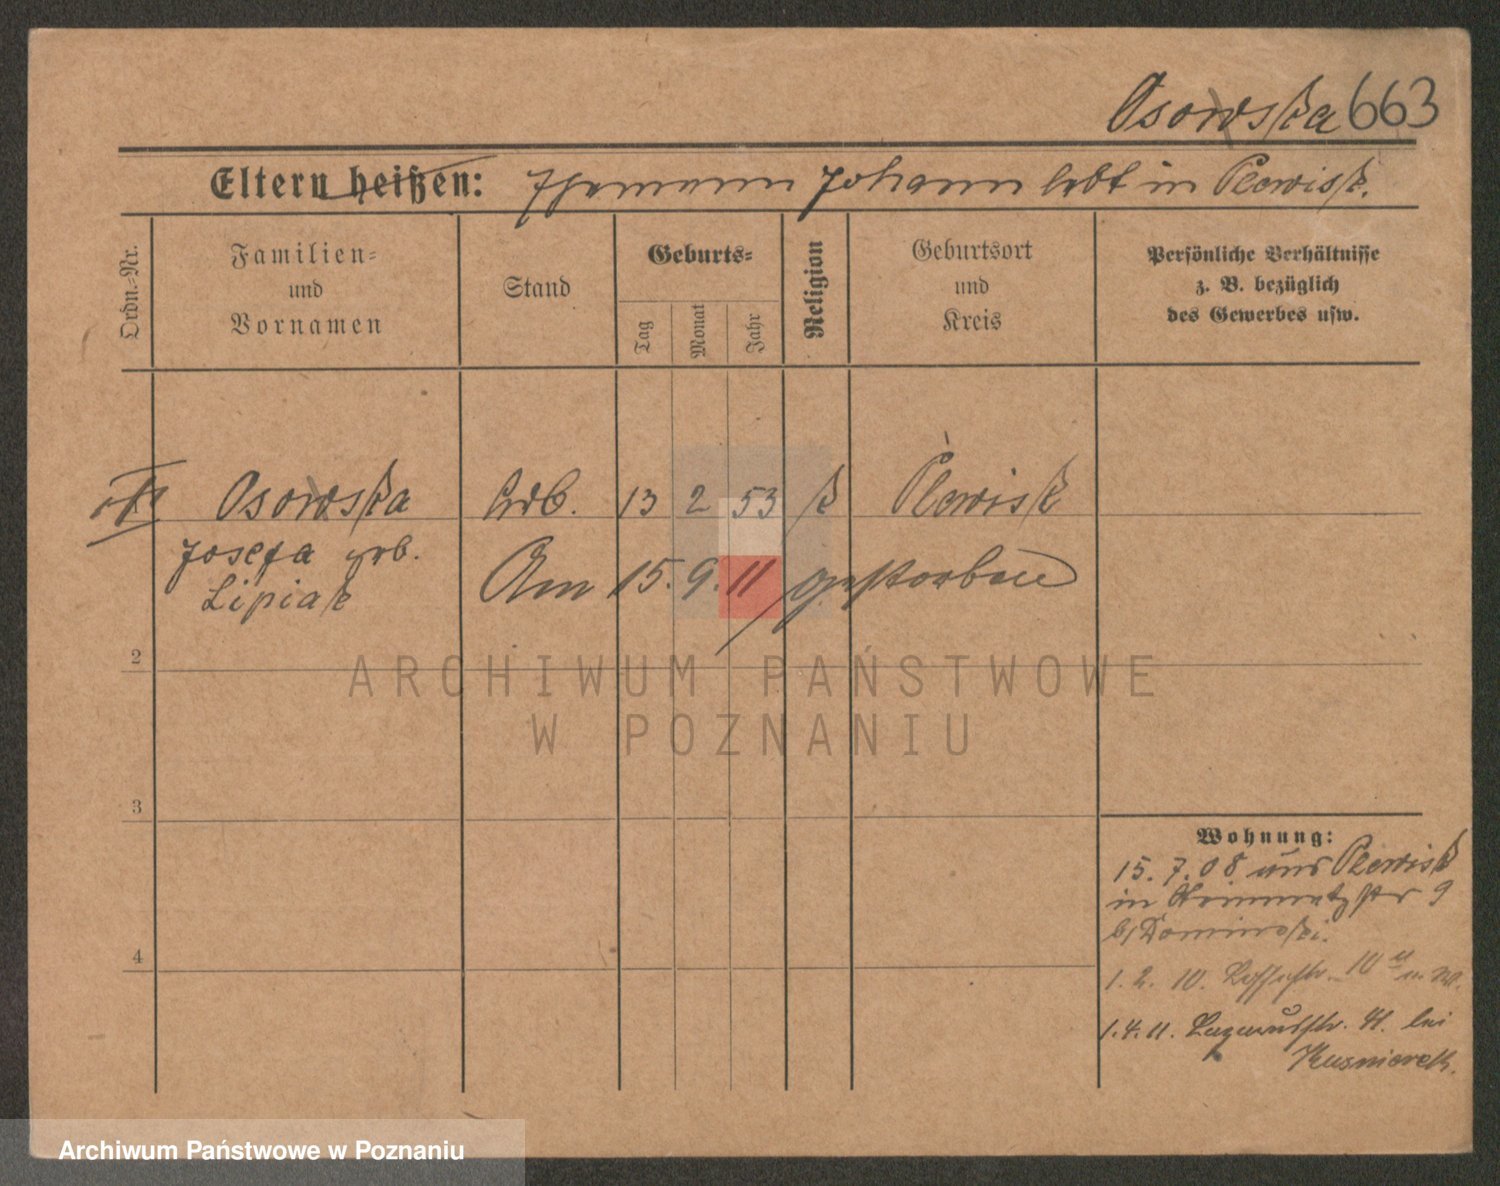 Osowska 663
Eltern heißen: Ehemann Johann lebt in Plewisk.
Ordn.-Nr.
Familien-
und
Vornamen
Stand
Geburts-
Tag
Monat
Jahr
Religion
Geburtsort
und
Kreis
Persönliche Verhältnisse
z. B. bezüglich
des Gewerbes usw.
Osowska Arb. 13 2 53 k Plewisk
Josefa geb.
Lipiak
Am 15. 9. 11 gestorben
2
ARCHIWUM PAŃSTWOWE
W POZNANIU
3
4
Wohnung:
15. 7. 08 aus Plewisk
in str 9
b/ Dominski.
1. 2. 10. 10
1. 4. 11. Lazarusstr. bei
Archiwum Państwowe w Poznaniu